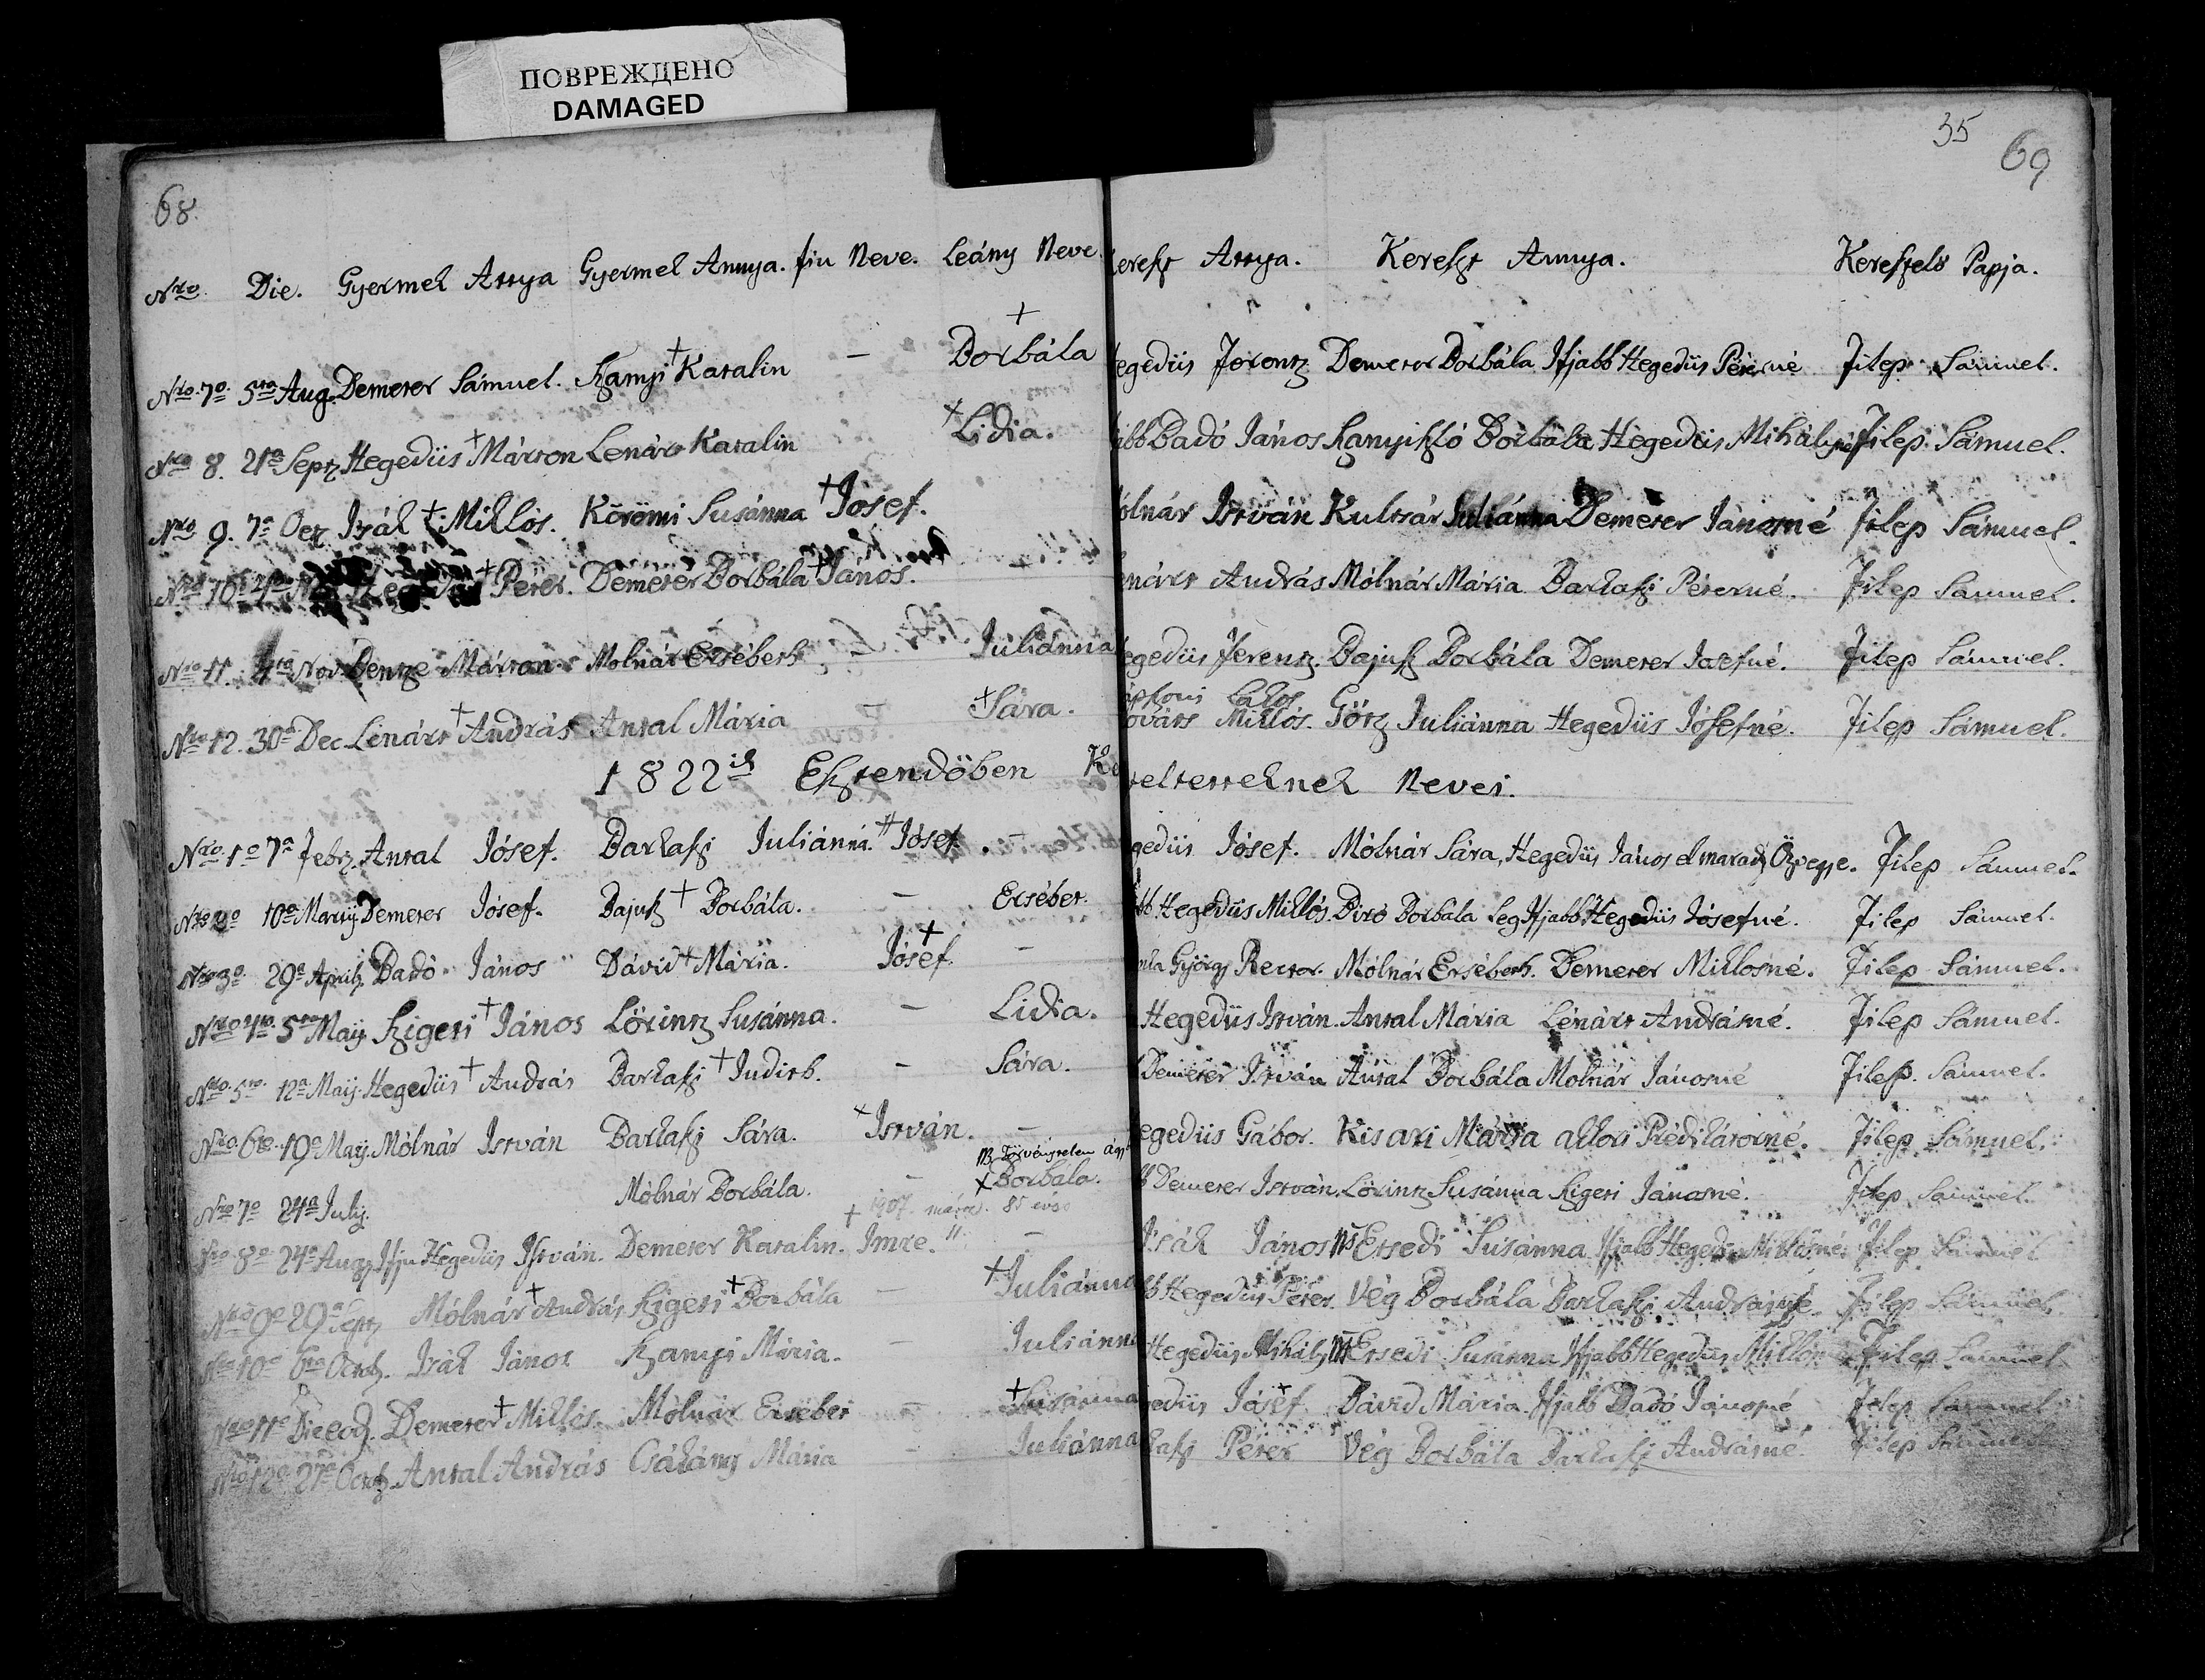 ПОВРЕЖДЕНО
DAMAGED
68.
35
69
Nro. Die. Gyermek Attya Gyermek Annya. fiu Neve. Leány Neve Kereszt Attya. Kereszt Annya. Keresztelő Papja.
Nro. 7o. 5ta Aug. Demeter Sámuel. Szanyi Katalin – Borbála egedüs Ferentz Demeter Borbála Ifjabb Hegedüs Péterné Filep Sámuel.
Nro 8. 21a Septz Hegedüs Márton Lenárt Katalin Lidia. ibb Dadó János Szanyiszló Borbála Hegedüs Mihályné Filep Sámuel.
Nro 9. 7a Octz Isák Miklós. Körömi Susánna Josef. ólnár István Kultsár Juliánna Demeter Jánosné Filep Sámuel.
Nro 10 Hegedüs Péter. Demeter Borbála János. – enárt András Mólnár Mária Barkaszi Péterné. Filep Sámuel.
Nro 11. 4ta Nov. Bentze Márton Molnár Ersébeth – Juliánna egedüs Ferentz. Bajusz Borbála Demeter Josefné. Filep Sámuel.
Lakos
Nro 12. 30a Dec Lénárt András Antal Mária – Sára. ováts Miklós. Götz Juliánna Hegedüs Jósefné. Filep Sámuel.
1822ik Esztendöben Ke teltetteknek Nevei.
Nro. 1o 7a Febrz. Antal Jósef. Barkaszi Juliánná. Jósef. – gedüs Jósef. Mólnár Sára, Hegedüs János elmaradz Özvegye. Filep Sámuel.
Nro 2o 10a Martij Demeter Jósef. Bajusz Borbála. – Ersébet. bb Hegedüs Miklós. Biró Borbála Leg Ifjabb Hegedüs Jósefné. Filep Sámuel.
Nro 3o. 29a Aprilz. Dadó János Dávid Mária. Jósef. – György Rector. Mólnár Ersébeth. Demeter Miklosné. Filep Sámuel.
Nro 4to. 5ta Maij. Szigeti János Lörintz Susánna. – Lidia. Hegedüs István. Antal Mária Lénárt Andrásné. Filep Sámuel.
Nro. 5to. 12a Maij. Hegedüs András Barkaszi Judith. – Sára. Demeter István Antal Borbála Molnár Jánosné Filep. Sámuel.
Nro. 6to. 19a Maij. Mólnár István Barkaszi Sára. István. – egedüs Gábor. Kis ari Mária aktori Prédikátorné. Filep Sámuel.
NB Törvénytelen ágy
Nro 7o 24a Julij. Mólnár Borbála. – Borbála. b Demeter István. Lörintz Susánna Szigeti Jánosné. Filep Sámuel.
1907. márcz. 85 éves
Nro 8o 24a Augz Ifju Hegedüs István. Demeter Katalin. Imre. – Isák János NS Ersedi Susánna Ifjabb Hegedüs Miklósné. Filep Sámuel
Nro 9o 29a Septz Mólnár András Szigeti Borbála – Juliánna b Hegedüs Péter. Vég Borbála Barkaszi Andrásné. Filep Sámuel.
Nro 10o 6ta Octobz. Isák János Szanyi Mária. – Juliánna Hegedüs Mihály NS Ersedi Susánna Ifjabb Hegedüs Miklós Filep Sámuel
Nro 11o Die eod. Demeter Miklós. Mólnár Ersébet – Susánna edüs Jósef Dávid Mária Ifjabb Dadó Jánosné Filep Sámuel
Nro 12o 27a Octobz Antal András Csákány Mária – Juliánna kaszi Péter Vég Borbála Barkaszi Andrásné. Filep Sámuel